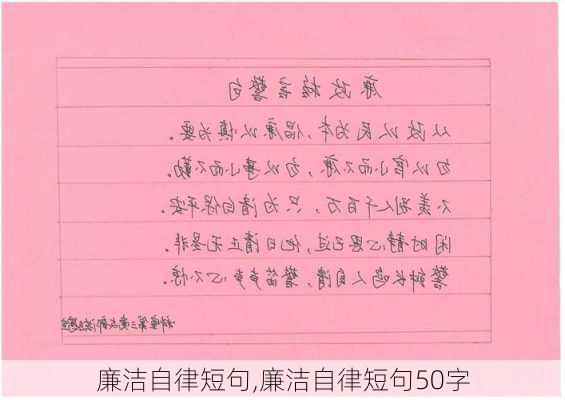 廉政格言警句
从政以民为本，倡廉以慎为要。
勿以官小而不廉，勿以事小而不勤。
不羡别人千百万，只为清白保平安。
闲时静心思己过，他日清正无是非。
警钟长鸣人自清，警笛声声心不惊。
第三党支部
廉洁自律短句,廉洁自律短句50字